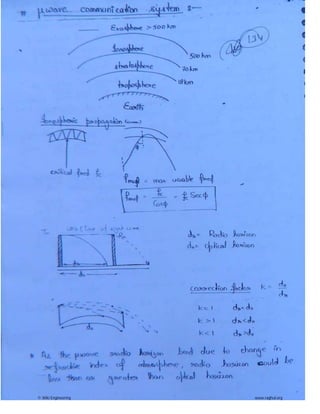 # μwave communication system :-
134
Exosphere > 500 km
Ionosphere
500 km
stratosphere
70 km
18 km
troposphere
Earth
Ionospheric propagation
φ
critical freq fc
fmuf - max usable freq
fmuf = fc / Cosφ = fc Secφ
Line of sight
dr = Radio horizon
do = optical horizon
correction factor k =
k = 1
k > 1
k < 1
* As the μwave radio horizon bend due to change in
refractive index of atmosphere, radio horizon could be
less than or greater than optical horizon
© Wiki Engineering
www.raghul.org